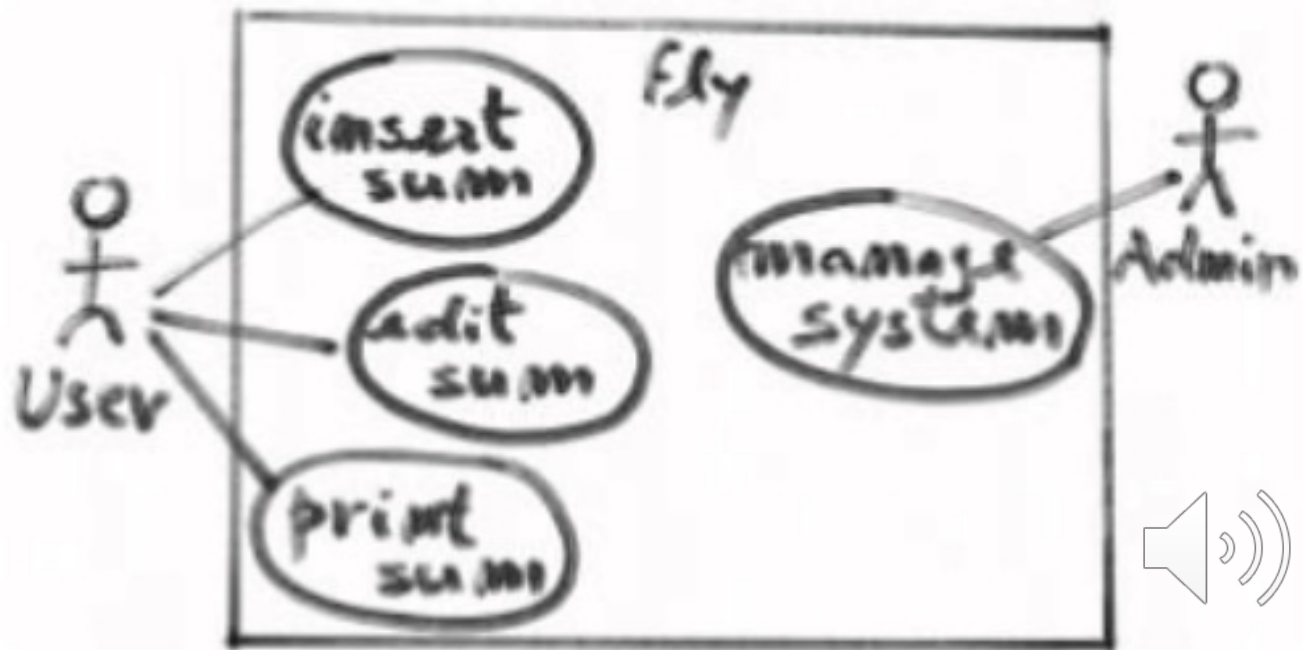 Fly
insert
su.m
edit
su.m
print
su.m
manage
system
User
Admin